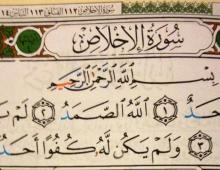 سورة الإخلاص ١١٢ الفلق ١١٣ الناس ١٤
سُورَةُ الإِخْلَاصِ
بِسْمِ اللَّهِ الرَّحْمَٰنِ الرَّحِيمِ
حَدٌ ١ اللَّهُ الصَّمَدُ ٢ لَمْ يَ
٣ وَلَمْ يَكُن لَّهُ كُفُوًا أَحَدٌ